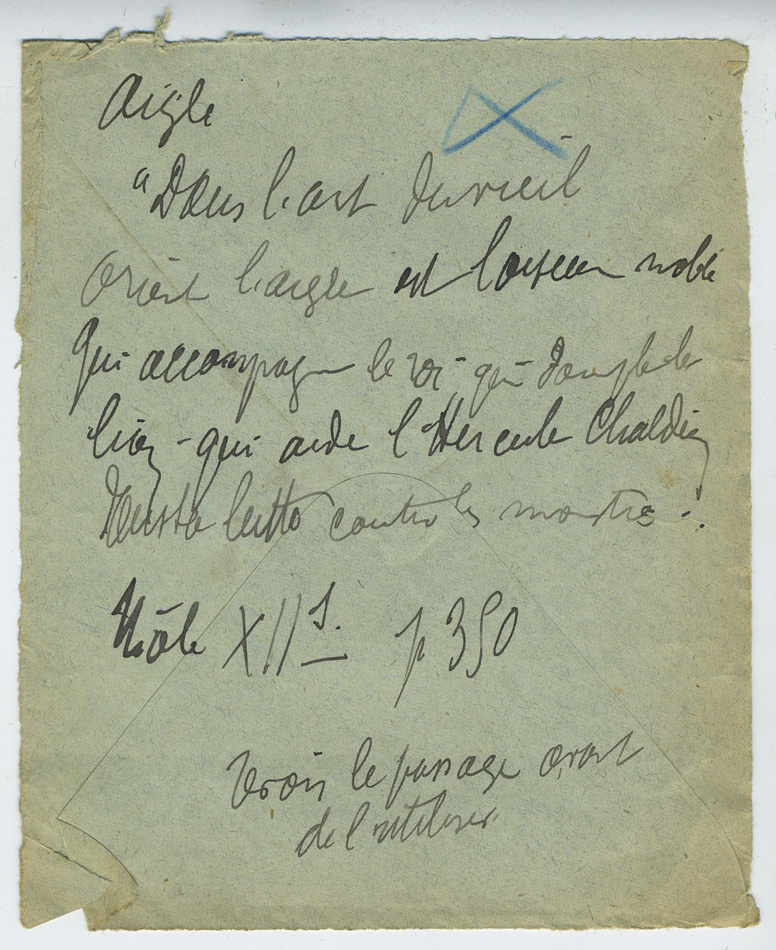 Aigle
"Dans l'art du vieil
Orient l'aigle est l'oiseau noble
qui accompagne le roi - qui dompte le
lion - qui aide l'Hercule Chaldéen
dans sa lutte contre les monstres".
Mâle XII s. p 350
Revoir le passage avant
de l'utiliser